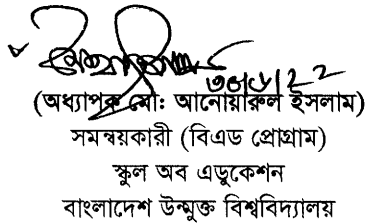 (অধ্যাপক মো: আনোয়ারুল ইসলাম)
সমন্বয়কারী (বিএড প্রোগ্রাম)
স্কুল অব এডুকেশন
বাংলাদেশ উন্মুক্ত বিশ্ববিদ্যালয়